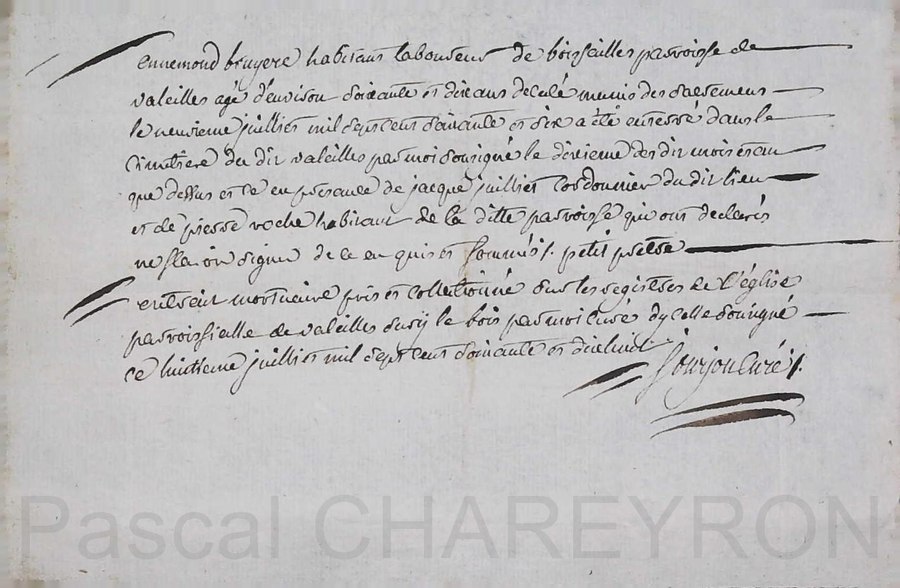 ennemond bruyere habitant laboureur de boisseilles parroisse de
valeilles agé d'environ soixante et dix ans decédé munis des sacremens
le neuvieme juillier mil sept cent soixante et dix a été enterré dans le
cimetiere du dit valeilles par moi sousigné le dixieme des dit mois et an
que dessus et ce en présence de jacque juillier cordonnier du dit lieu
et de pierre roche habitant de la ditte parroisse qui ont declarés
ne sçavoir signer de ce enquis et sommés /. petit prêtre
extrait mortuaire pris et collationné sur les registres de l'église
parroissialle de valeilles par moi curé d'ycelle sousigné
ce huitieme juillier mil sept cent soixante et dix huit
Fourjon curé /.
Pascal CHAREYRON